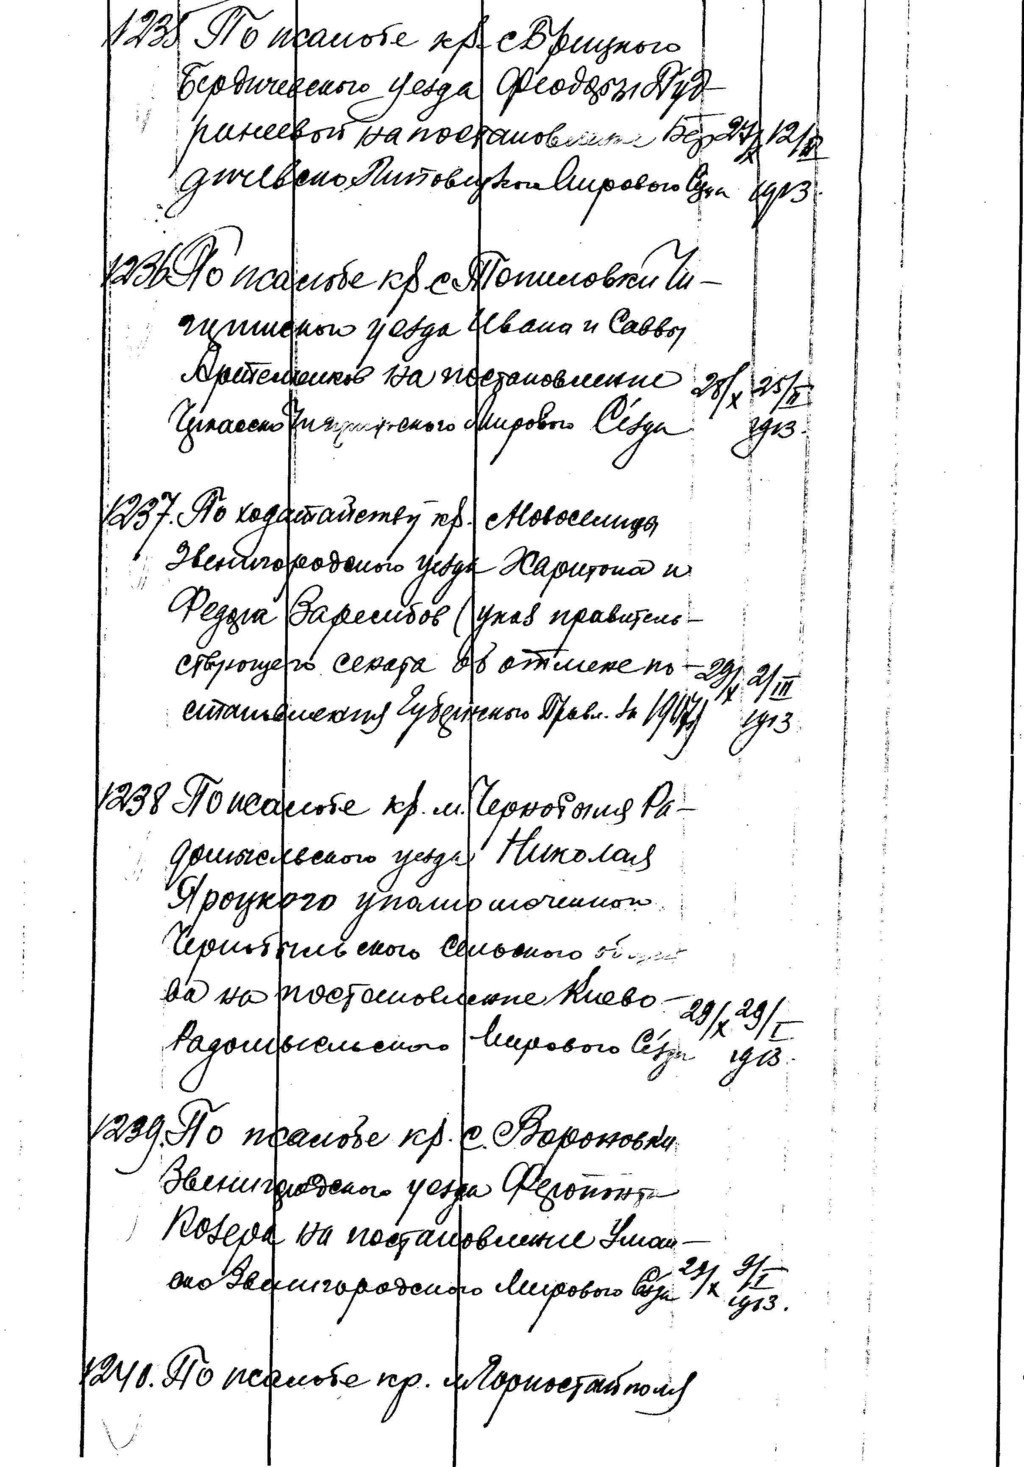 1235 По жалобе кр. с Брицкого
Бердичевского уезда Феодоры Гуд-
риневой на постановление Бер- 27/X 12/III
дичевско Липовецкого Мирового Съезда 1913.
1236 По жалобе кр. с Топиловки Чи-
гиринского уезда Ивана и Саввы
на постановление 28/X 25/II
Черкасско Чигиринского Мирового Съезда 1913.
1237. По ходатайству кр. с Новоселицы
Звенигородского уезда Харитона и
Федора (указ правитель-
ствующего сената об отмене по- 29/X 2/III
становления Губернского Правл. за 1907) 1913
1238 По жалобе кр. м. Чернобыля Ра-
домысльского уезда Николая
Яроцкого уполномоченного
Чернобыльского сельского общест
ва на постановление Киево- 29/X 29/I
Радомысльского Мирового Съезда 1913.
1239. По жалобе кр. с. Вороновки
Звенигородского уезда Ферапонта
Козера на постановление Уман-
ско Звенигородского Мирового Съезда 29/X 9/I 1913.
1240. По жалобе кр. м Горностайполя